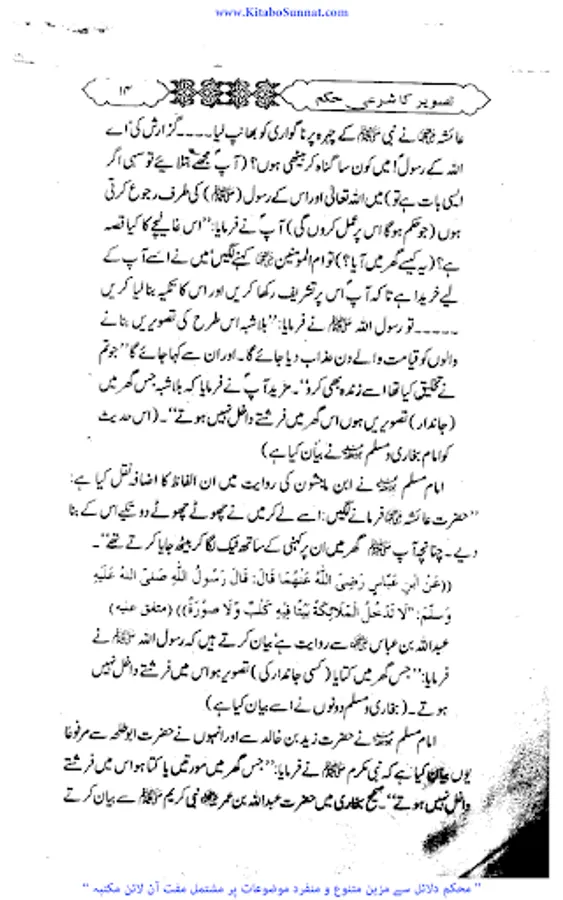 www.KitaboSunnat.com
تصویر کا شرعی حکم
۱۴
عائشہ رضی اللہ عنہا نے نبی ﷺ کے چہرہ پر ناگواری کو بھانپ لیا ۔۔۔۔ گزارش کی' اے
اللہ کے رسول! میں کون سا گناہ کر بیٹھی ہوں؟ (آپ مجھے بتلائیے تو سہی اگر
ایسی بات ہے تو) میں اللہ تعالیٰ اور اس کے رسول (ﷺ) کی طرف رجوع کرتی
ہوں (جو حکم ہوگا اس پر عمل کروں گی) آپ نے فرمایا: "اس غالیچے کا کیا قصہ
ہے؟ (یہ کیسے گھر میں آیا؟) تو ام المومنین رضی اللہ عنہا کہنے لگیں' میں نے اسے آپ کے
لیے خریدا ہے تاکہ آپ اس پر تشریف رکھا کریں اور اس کا تکیہ بنا لیا کریں
۔۔۔۔۔ تو رسول اللہ ﷺ نے فرمایا: "بلاشبہ اس طرح کی تصویریں بنانے
والوں کو قیامت والے دن عذاب دیا جائے گا۔ اور ان سے کہا جائے گا "جو تم
نے تخلیق کیا تھا اسے زندہ بھی کرو"۔ مزید آپ نے فرمایا کہ بلاشبہ جس گھر میں
(جاندار) تصویریں ہوں اس گھر میں فرشتے داخل نہیں ہوتے"۔ (اس حدیث
کو امام بخاری و مسلم نے بیان کیا ہے)
امام مسلم نے ابن ماجشون کی روایت میں ان الفاظ کا اضافہ نقل کیا ہے:
"حضرت عائشہ رضی اللہ عنہا فرمانے لگیں: اسے لے کر میں نے چھوٹے چھوٹے دو تکیے اس کے بنا
دیے۔ چنانچہ آپ ﷺ گھر میں ان پر کہنی کے ساتھ ٹیک لگا کر بیٹھ جایا کرتے تھے"۔
((عَنْ ابْنِ عَبَّاسٍ رَضِیَ اللّٰهُ عَنْهُمَا قَالَ: قَالَ رَسُوْلُ اللّٰهِ صَلَّى اللهُ عَلَيْهِ
وَسَلَّمَ: "لَا تَدْخُلُ الْمَلَائِكَةُ بَيْتًا فِيهِ كَلْبٌ وَّلَا صُوْرَةٌ)) (متفق عليه)
عبداللہ بن عباس سے روایت ہے' بیان کرتے ہیں کہ رسول اللہ ﷺ نے
فرمایا: "جس گھر میں کتا یا (کسی جاندار کی) تصویر ہو اس میں فرشتے داخل نہیں
ہوتے۔ (بخاری و مسلم دونوں نے اسے بیان کیا ہے)
امام مسلم نے حضرت زید بن خالد سے اور انہوں نے حضرت ابوطلحہ سے مرفوعاً
یوں بیان کیا ہے کہ نبی مکرم ﷺ نے فرمایا: "جس گھر میں مورتیں یا کتا ہو اس میں فرشتے
داخل نہیں ہوتے"۔ صحیح بخاری میں حضرت عبداللہ بن عمر نبی کریم ﷺ سے بیان کرتے
" محکم دلائل سے مزین متنوع و منفرد موضوعات پر مشتمل مفت آن لائن مکتبہ "